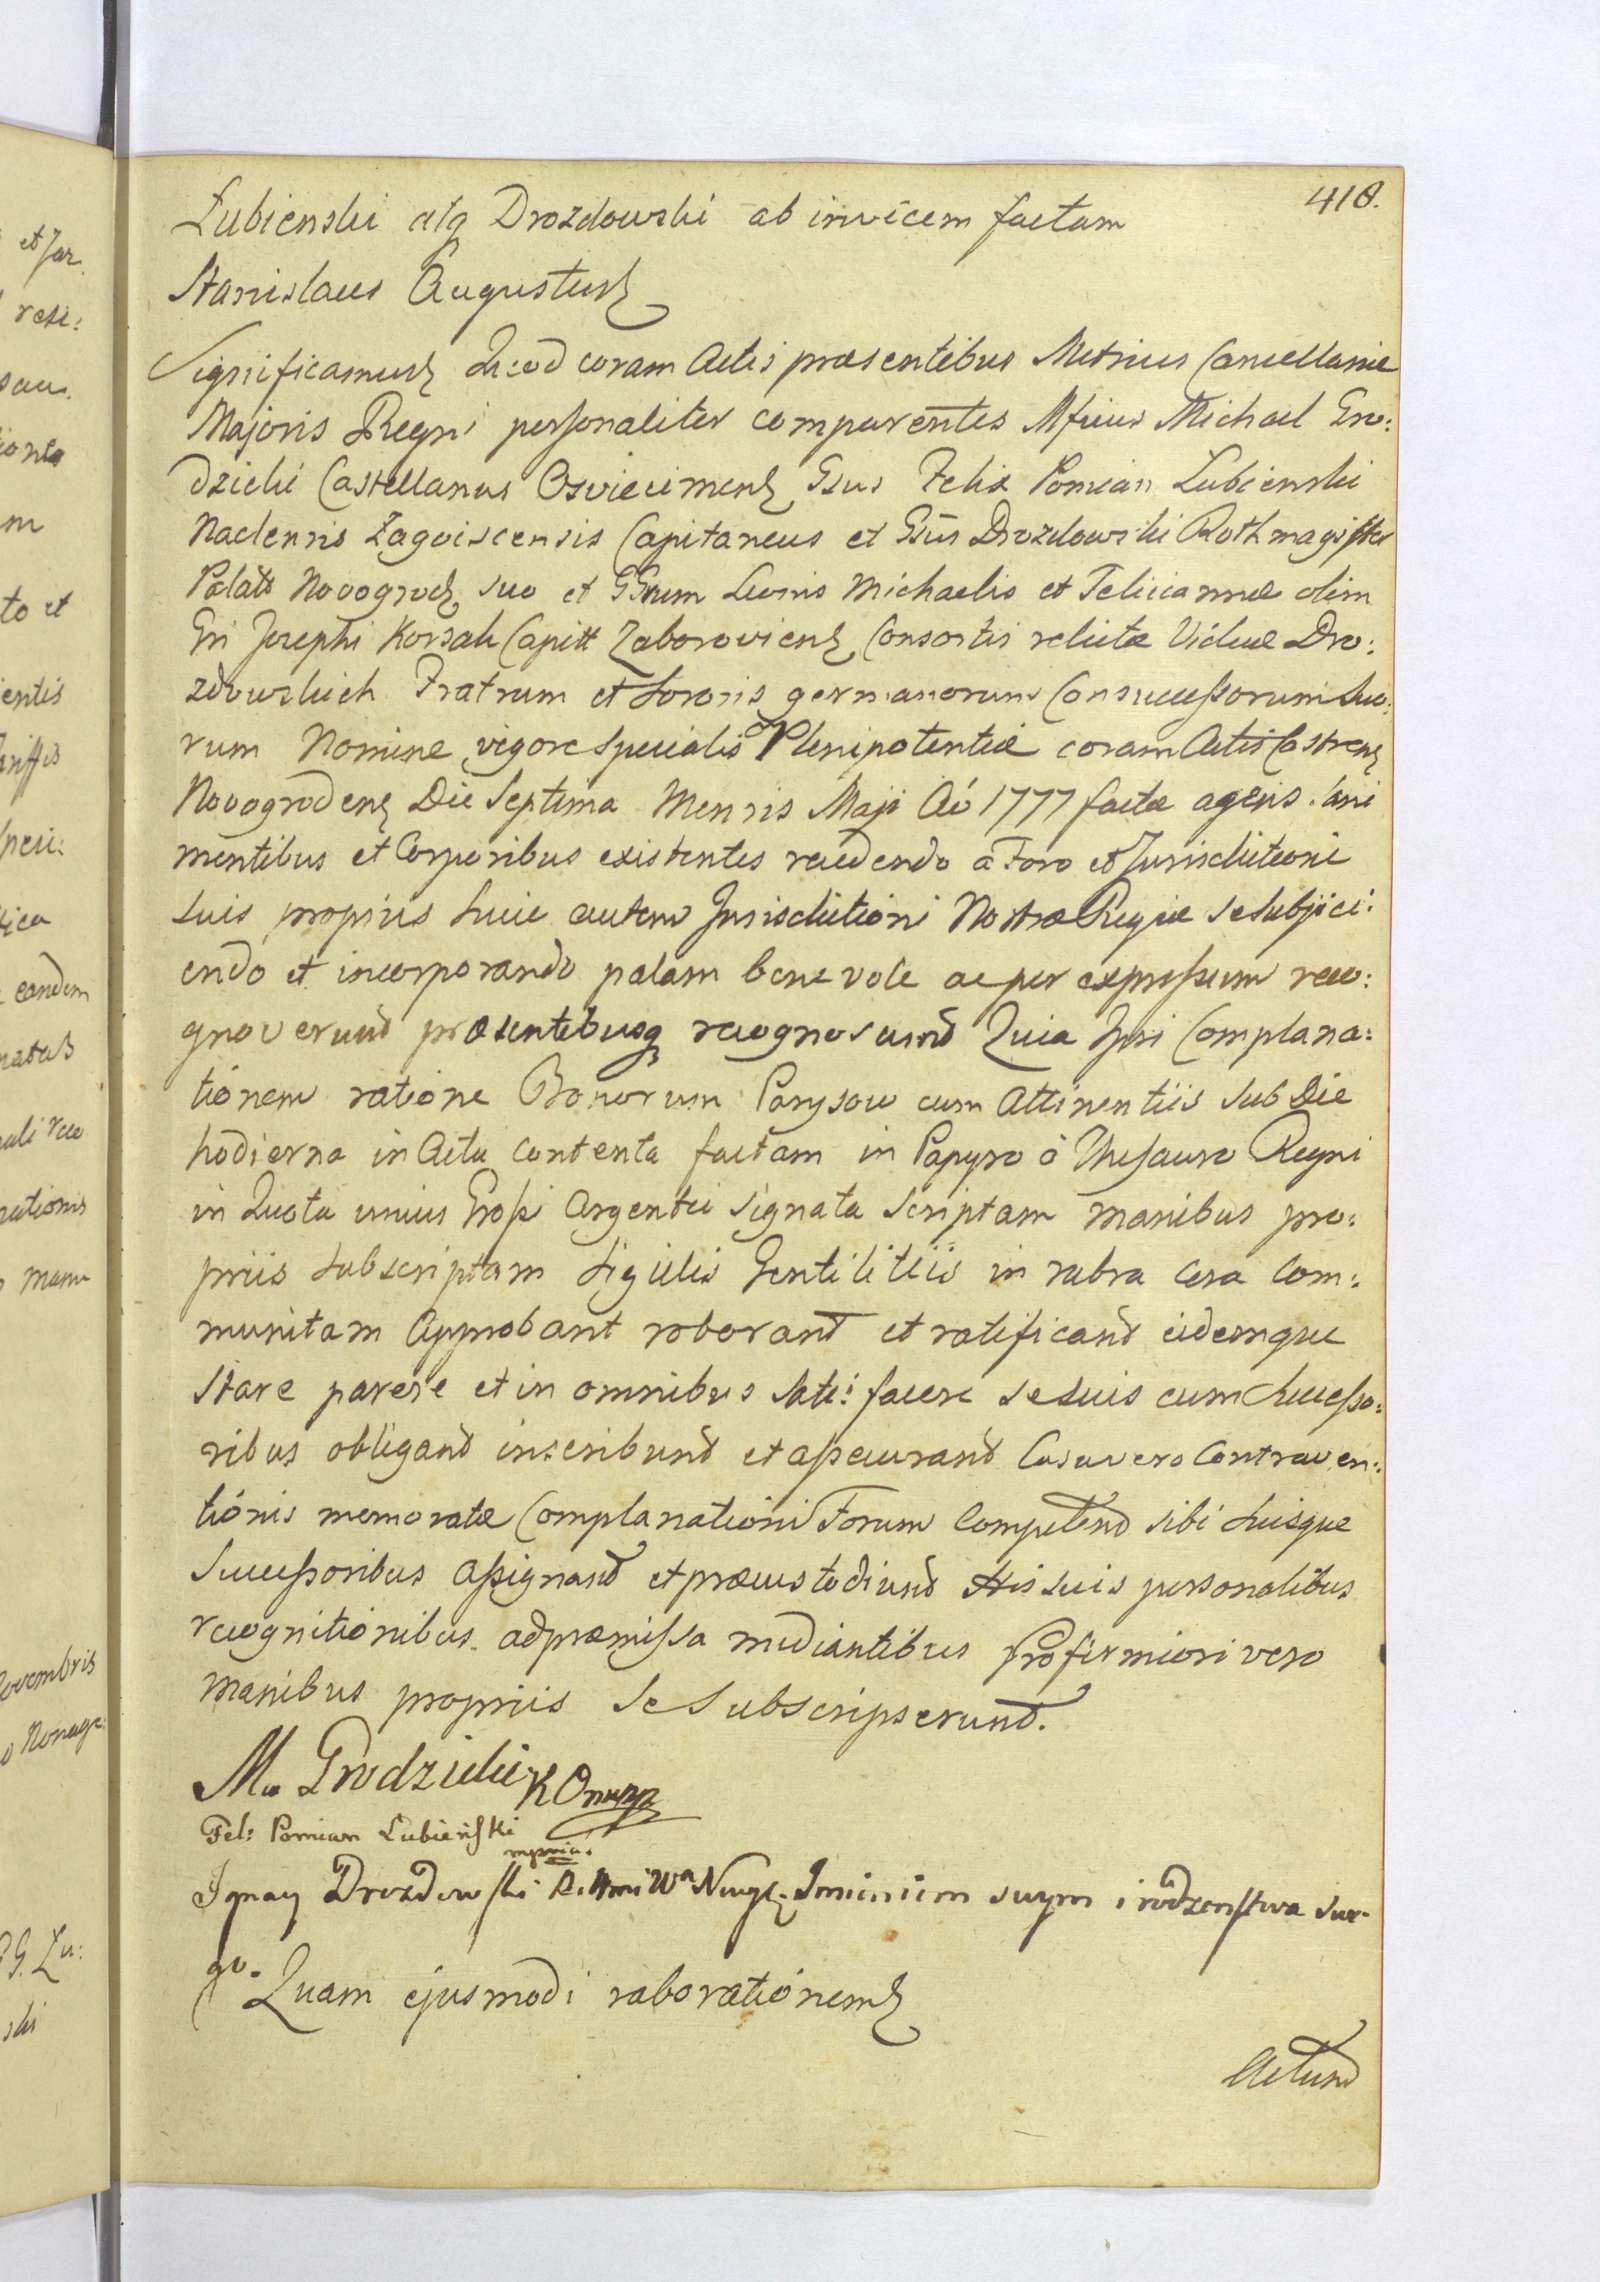 418.
Łubienski atq Drozdowski ab invicem factam
Stanislaus Augustus
Significamus Quod coram Actis præsentibus Metrices Cancellariæ
Majoris Regni personaliter comparentes Mficus Michael Gro:
dzicki Castellanus Oswiecimens Gsus Felix Pomian Lubienski
Naclensis Zagoiscensis Capitaneus et Gsus Drozdowski Rothmagister
Palatt Novogrod suo et GGrum Leonis Michaelis et Feliciannæ olim
Gsi Josephi Korsak Capitt Zaboroviens Consortis relictæ Viduæ Dro:
zdowskich Fratrum et Sororis germanorum Consuccessorum Suo:
rum Nomine vigore specialis Plenipotentiæ coram Actis Castrens
Novogrodens Die Septima Mensis Maji Aó 1777 factæ agens. Sani
mentibus et Corporibus existentes recedendo a Foro et Jurisdictione
suis propriis huic autem Jurisdictioni Nostræ Regiæ se subjici:
endo et incorporando palam benevole ac per expressum reco:
gnoverunt præsentibusq recognoscunt Quia Ipsi Complana:
tionem ratione Bonorum Parysow cum Attinentiis sub Die
hodierna in Actu Contenta factam in Papyro à Thesauro Regni
in Quota unius Grossi Argentei signata scriptam manibus pro:
priis subscriptam sigillis Gentilitiis in rubra cera Com:
munitam Approbant roborant et ratificant eidemque
stare parere et in omnibus satis facere se suis cum Successo:
ribus obligant inscribunt et assecurant Casu vero Contraven:
tionis memoratæ Complanationi Forum Competens sibi suisque
Successoribus assignant et præcustodiunt His suis personalibus
recognitionibus ad præmissa mediantibus Pro firmiori vero
manibus propriis se subscripserunt.
M. Grodzicki K O
Fel: Pomian Łubieński
mppria.
Ignacy Drozdowski Imieniem swym i rodzenstwa swe-
go.
Quam ejusmodi roborationem
Actum